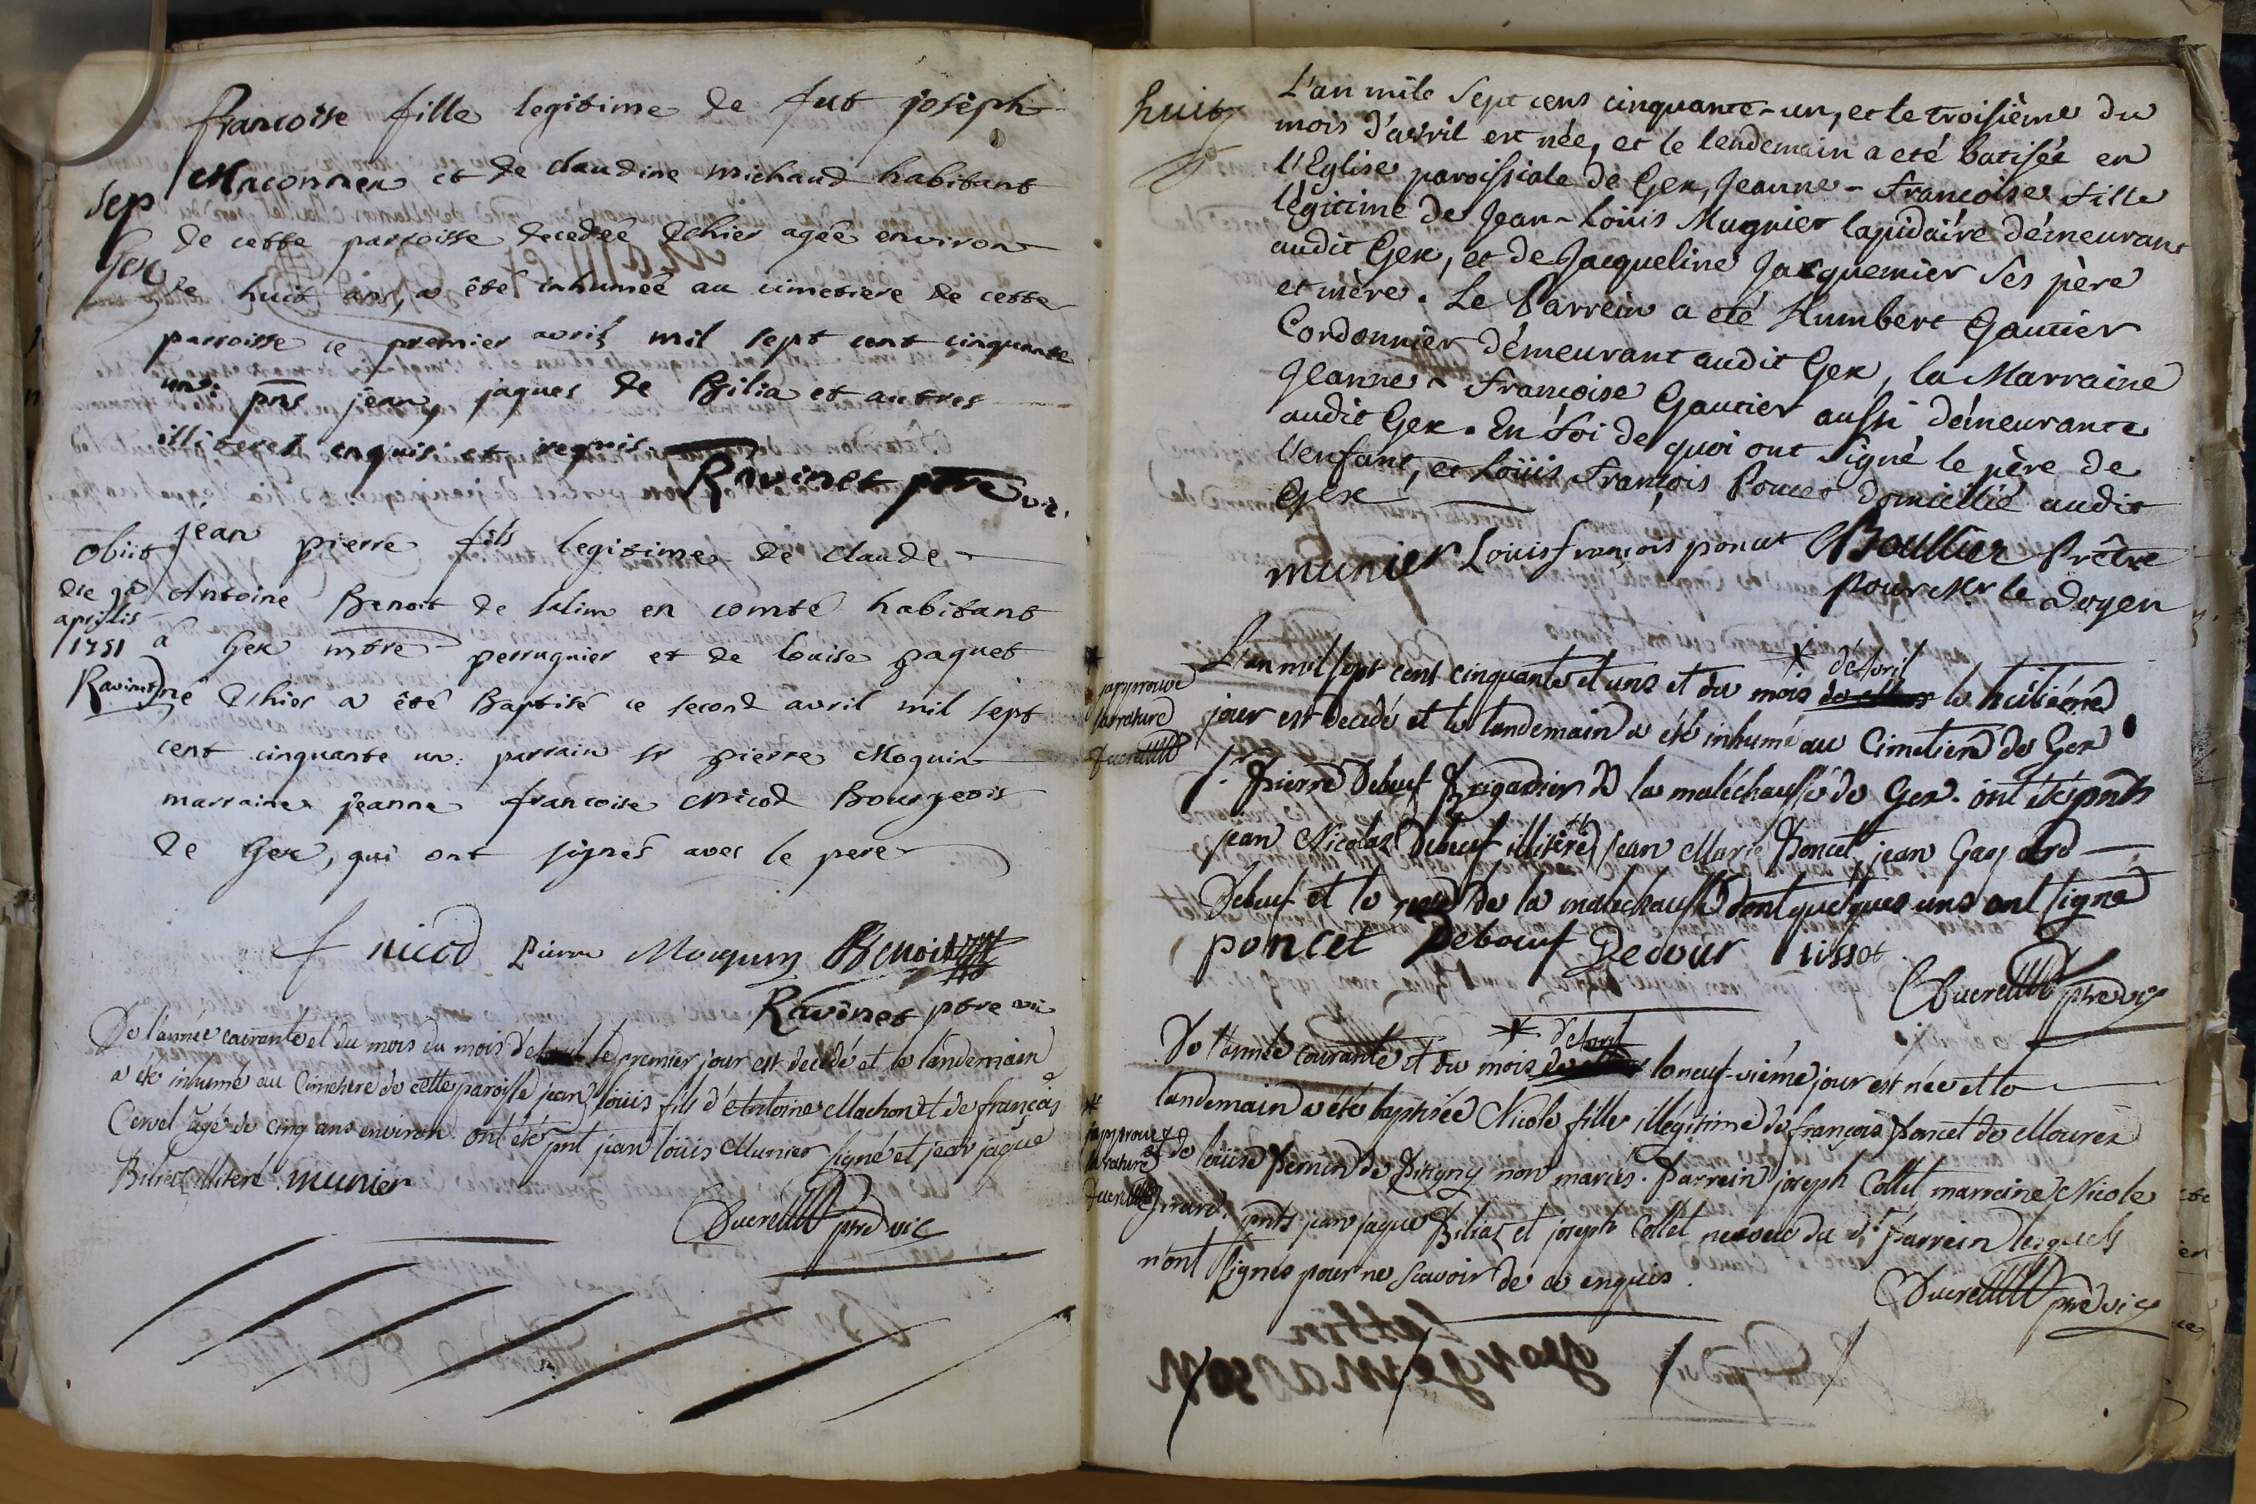 francoise fille legitime de fut joseph
Maconnex et de claudine michaud habitant
sep
de cette parroisse decedée d'hier agée environ
Gex
de huit ans, a été inhumée au cimetiere de cette
parroisse ce premier avril mil sept cent cinquante
un: pns jean jaques de Bilia et autres
illiteres enquis et requis
Ravinet ptre vic.
jean pierre fils legitime de claude
obiit
die 9a
aprilis
1751
Ravinet
Antoine Benoit de salin en comté habitant
a Gex mtre perruquier et de louise paquet
né d'hier a été Baptisé ce second avril mil sept
cent cinquante un: parrain sr pierre Moquin
marraine jeanne francoise Nicod Bourgeois
de Gex, qui ont signés avec le pere
f nicod pierre Moquin Benoit
Ravinet ptre vic
De l'année courante et du mois du mois le premier jour est decedé et le landemain
a été inhumé au Cimetiere de cette paroisse jean louis fils d'Antoine Machon et de françoise
Cervel agé de cinq ans environ. ont été pnt jean louis Munier signé et jean jaque
Biliaz illiteré. munier
Ducret ptre vic
huit
L'an mile sept cens cinquante-un, et le troisième du
mois d'avril est née, et le lendemain a eté batisée en
l'Eglise paroissiale de Gex, Jeanne-Francoise fille
légitime de Jean-Loüis Mugnier lapidaire démeurant
audit Gex, et de Jacqueline Jacquemier ses père
et mère. Le Parrein a eté Humbert Gautier
Cordonnier démeurant audit Gex, la Marraine
Jeanne-Françoise Gautier aussi démeurante
audit Gex. En foi de quoi ont signé le père de
l'enfant, et Loüis François Poncet domicilié audit
Gex
munier Louis françois poncet Boullier Prêtre
pour Mr le doyen
* d'Avril
L'an mil sept cent cinquante et uns et du mois le huitiéme
* japprouve
la rature
Ducret
jour est decedé et le landemain a été inhumé au Cimetiere de Gex
Sr. pierre Debeuf Brigadier de la maléchaussé de Gex. ont été pnts
jean Nicolas Debeuf illiteré jean Marie Poncet, jean Gaspard
Debeuf et le reste de la maléchaussé dont quelques uns ont signé
poncet Deboeuf Decour tissot
Ducret ptre vic
* d'Avril
De l'année courante et du mois le neuf-viéme jour est née et le
landemain a été baptisée Nicole fille illégitime de françois Poncet de Mourex
* japprouve
la rature
Ducret
et de loüise Pernin de Pitigny non mariés. Parrein joseph Collet marraine Nicole
Girard. pnts jean jaque Biliaz et joseph Collet neuveu du dt. Parrein lesquels
n'ont signés pour ne scavoir de ce enquis.
Ducret ptre vic